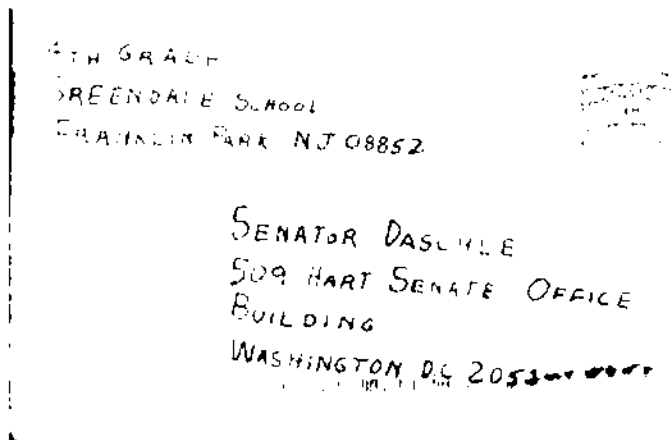 4TH GRADE
GREENDALE SCHOOL
FRANKLIN PARK NJ 08852
SENATOR DASCHLE
509 HART SENATE OFFICE
BUILDING
WASHINGTON D.C. 2053